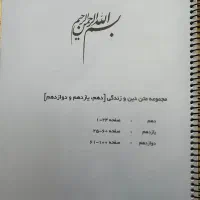 بسم الله الرحمن الرحیم
مجموعه متن دین و زندگی [دهم، یازدهم و دوازدهم]
دهم : صفحه ۲۴-۱
یازدهم : صفحه ۶۰-۲۵
دوازدهم : صفحه ۱۰۰-۶۱